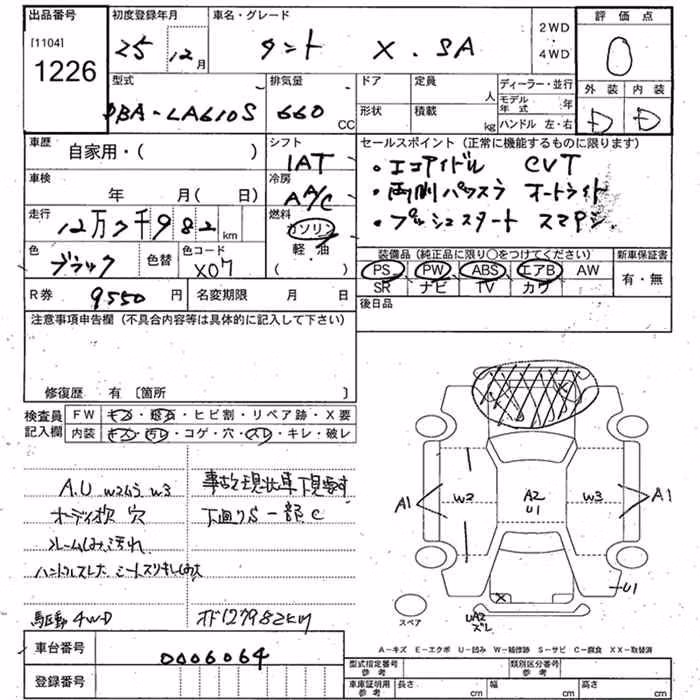 出品番号
[1104]
1226
初度登録年月
25 12月
車名・グレード
タント X.SA
2WD
・
4WD
評価点
0
外装 内装
D D
型式
DBA-LA610S
排気量
660 CC
ドア
定員
人
形状
積載
kg
ディーラー・並行
モデル年式 年
ハンドル 左・右
車歴
自家用・( )
シフト
IAT
セールスポイント(正常に機能するものに限ります)
・エコアイドル CVT
・両側パワスラ オートライト
・プッシュスタート スマアシ
車検
年 月(日)
冷房
AA/C
走行
12万7千982 km
燃料
ガソリン
軽・油
( )
色
ブラック
色替
色コード
X07
装備品(純正品に限り○をつけてください)
PS PW ABS エアB AW
SR ナビ TV カワ
新車保証書
有・無
R券 9550円
名変期限 月 日
後日品
注意事項申告欄(不具合内容等は具体的に記入して下さい)
修復歴 有 [箇所 ]
検査員記入欄
FW キズ・飛石・ヒビ割・リペア跡・X要
内装 キズ・汚レ・コゲ・穴・スレ・キレ・破レ
A.U W2 W3
オーディオ欠 穴
汚れ
ハンドルスレ
駆動4WD
事故現状車
下廻りS一部C
127982km
A1
W2
A2
U1
W3
A1
U1
X
UA2
ズレ
スペア
A-キズ E-エクボ U-凹み W-補修跡 S-サビ C-腐食 XX-取替済
車台番号
0006064
登録番号
型式指定番号
参考
類別区分番号
参考
車庫証明用
参考
長さ cm
幅 cm
高さ cm